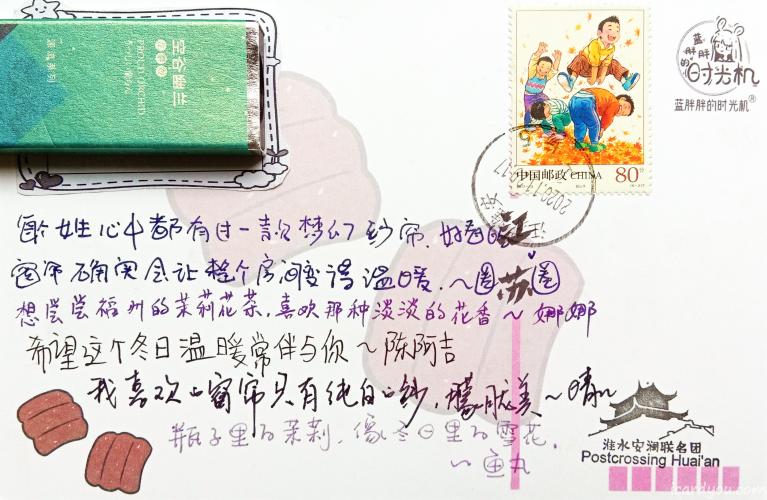 空谷幽兰
中国邮政 CHINA
80分
蓝胖胖的时光机
蓝胖胖的时光机®
每个女生心中都有过一款梦幻纱帘,好看的
窗帘确实会让整个房间变得温暖.~圈圈
江苏
想尝尝福州的茉莉花茶,喜欢那种淡淡的花香~娜娜
希望这个冬日温暖常伴与你~陈阿吉
我喜欢的窗帘只有纯白的纱,朦胧美~晴儿
瓶子里的茉莉,像冬日里的雪花.
~鱼丸
淮水安澜联名团
Postcrossing Huai'an